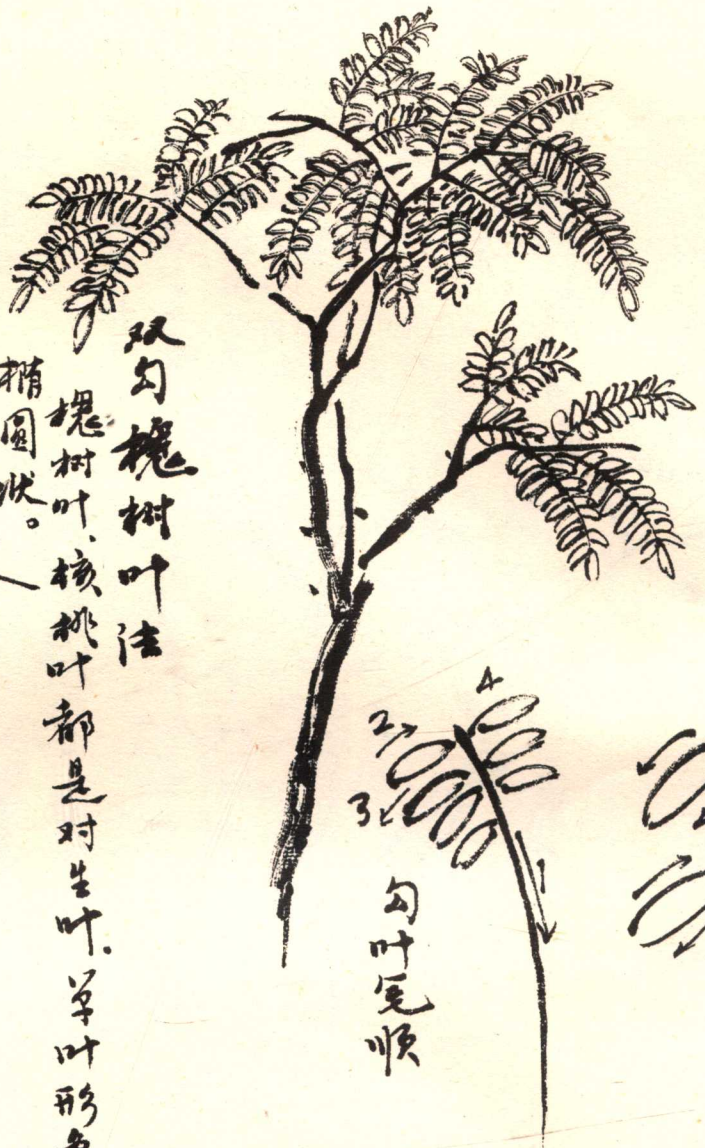 双勾槐树叶法
槐树叶、核桃叶都是对生叶.单叶形
椭圆状。
4
2
3
1
勾叶笔顺